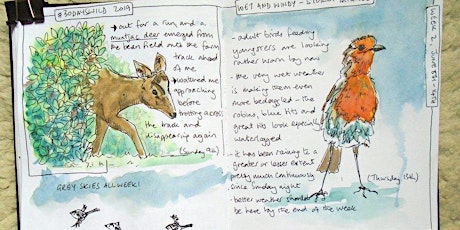 #30DAYSWILD 2019
→ out for a run, and a
muntjac deer emerged from
the bean field into the farm
track ahead
of me
→ watched me
approaching
before
trotting across
the track and
disappearing again
(Sunday 9th)
GREY SKIES ALL WEEK!
WET AND WINDY -
- adult birds feeding
youngsters are looking
rather worn by now
- the very wet weather
is making them even
more bedraggled - the
robins, blue tits and
great tits look especially
waterlogged
- it has been raining to a
greater or lesser extent
pretty much continuously
since Sunday night
- better weather should
be here by the end of the week
(Thursday 13th)
WEEK 2, JUNE